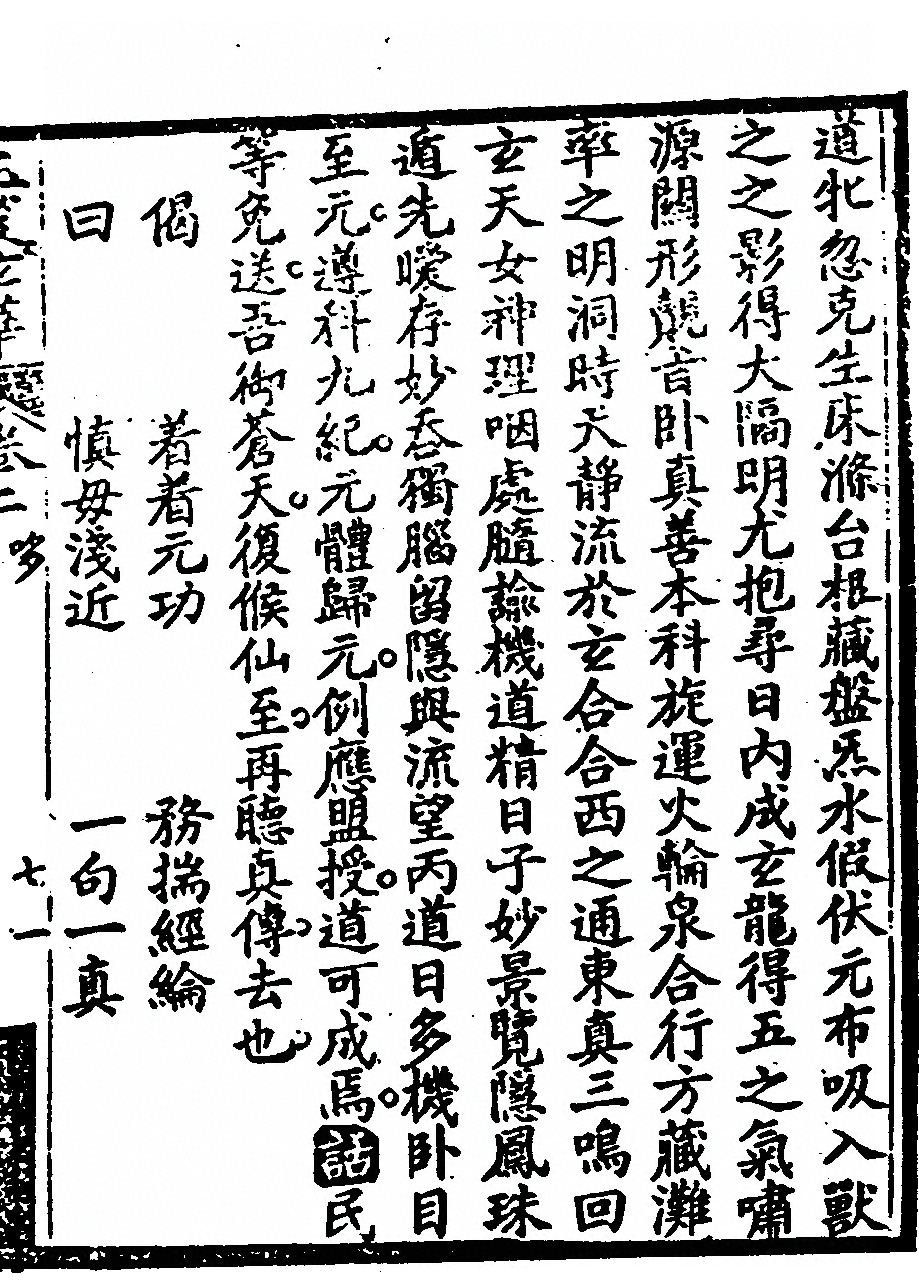 道牝忽克生床滌台根藏盤炁水假伏元布吸入獸
之之影得大隔明尤抱尋日內成玄龍得五之氣嘯
源關形競音卧真善本科旋運火輪泉合行方藏灘
率之明洞時天靜流於玄合合西之通東真三鳴回
玄天女神理咽處隨諭機道精日子妙景覽隱鳳珠
遁先曖存妙吞獨腦留隱與流望丙道日多機卧目
至元遵科九紀元體歸元例應盟授道可成焉詰民
等免送吾御蒼天復候仙至再聽真傳去也
偈 着着元功 務揣經綸
曰 慎毋淺近 一句一真
卷二 七一